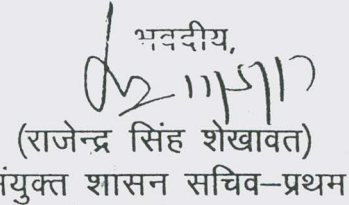 भवदीय,
(राजेन्द्र सिंह शेखावत)
संयुक्त शासन सचिव–प्रथम